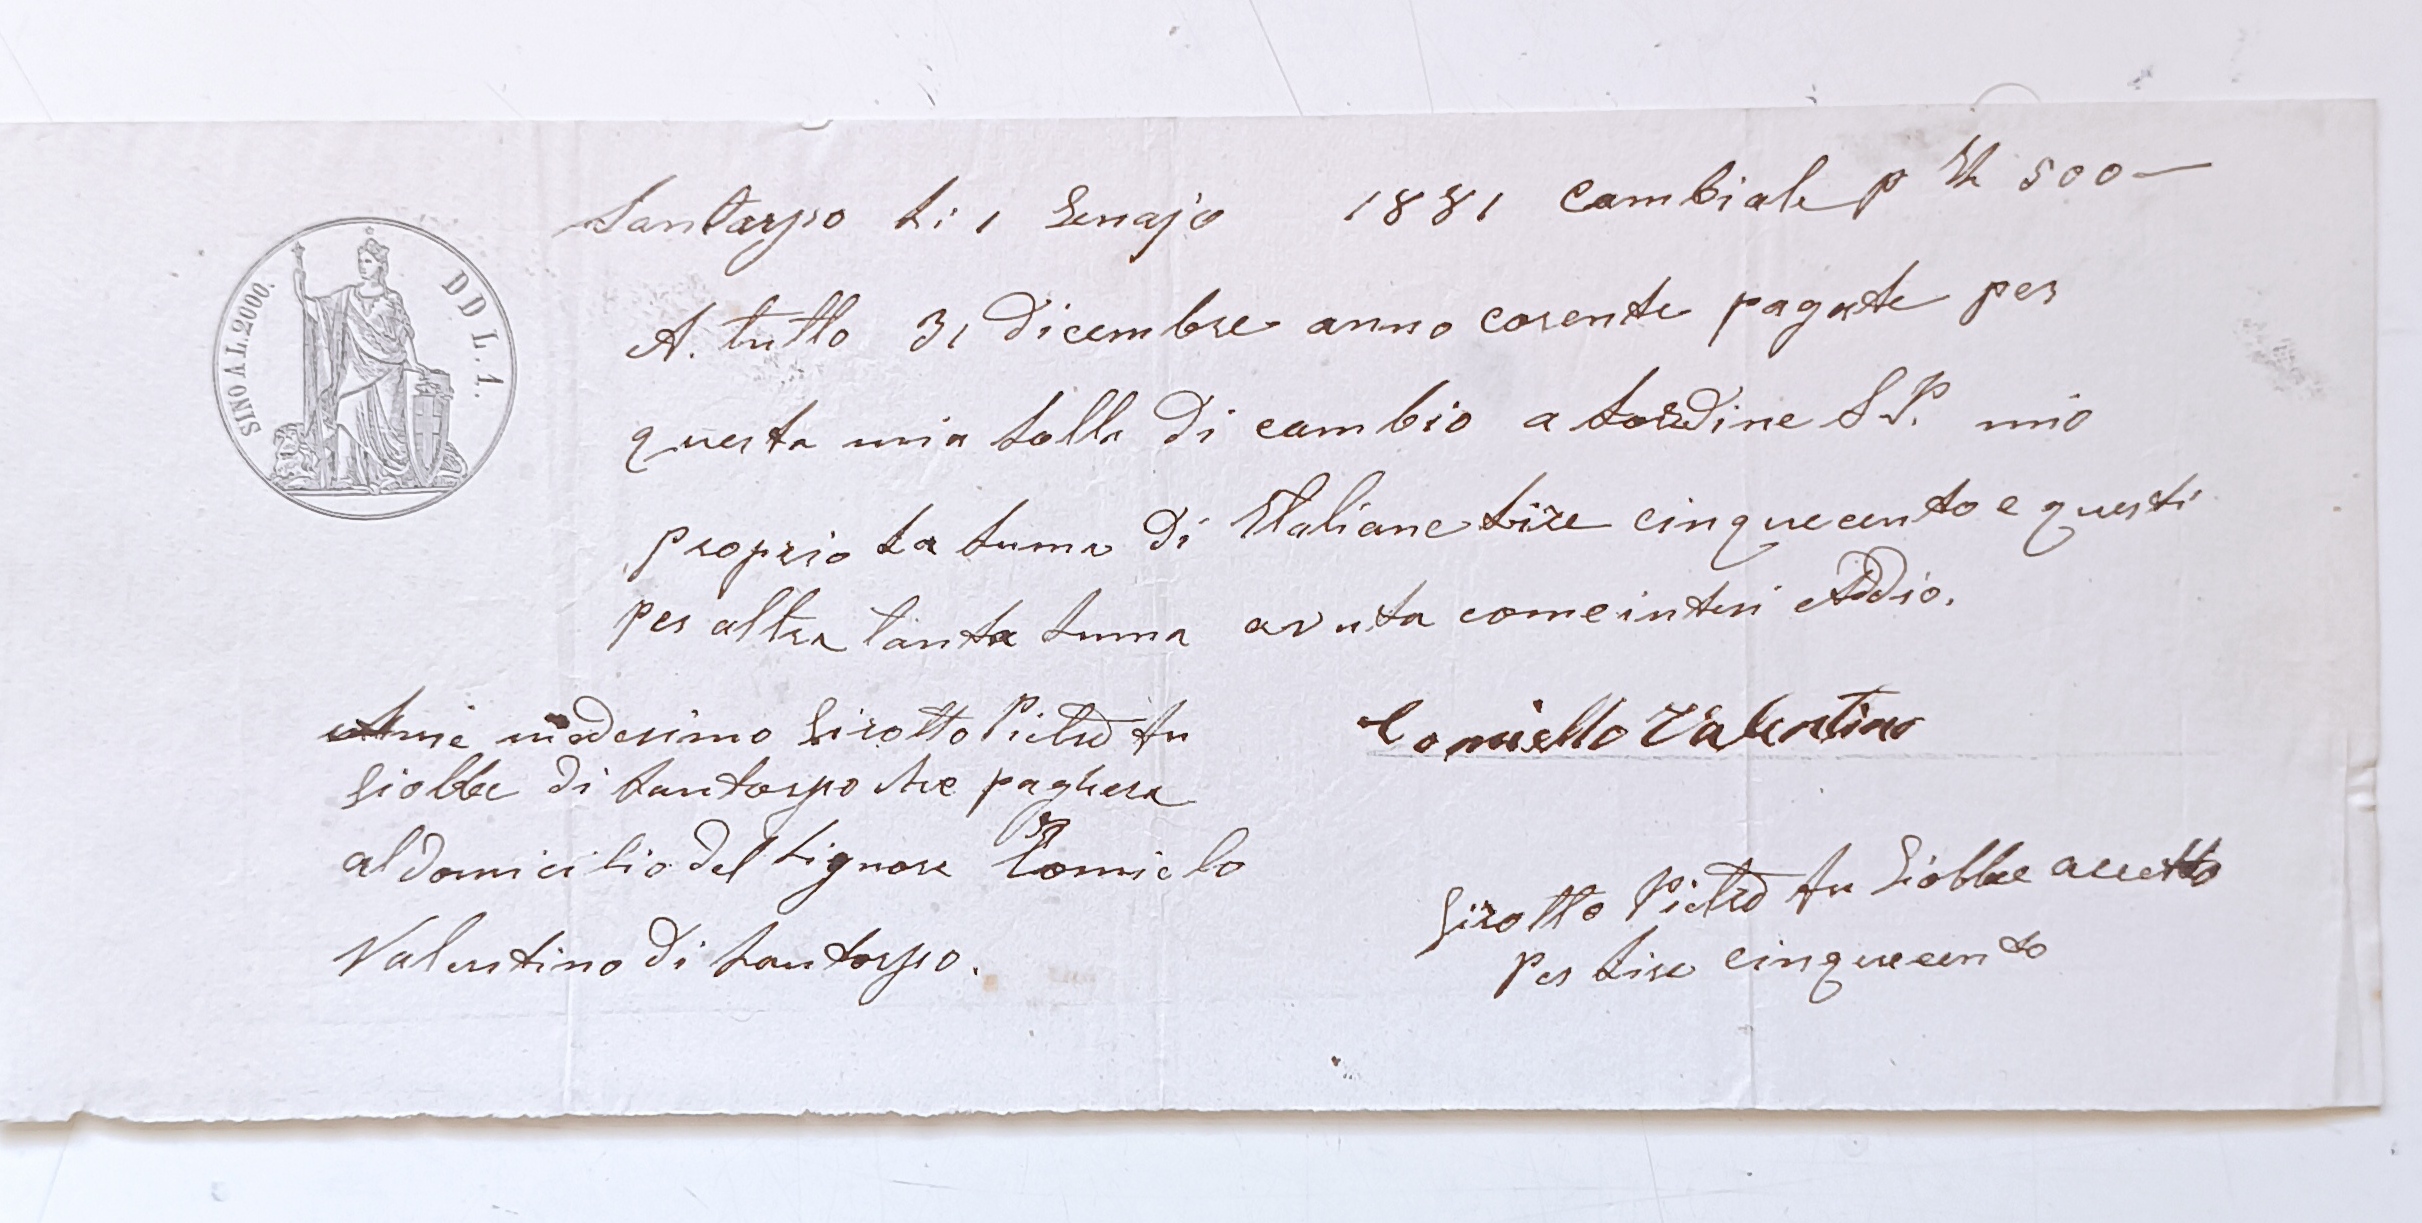 SINO A L. 2000. DD L. 1.
Santarpo Li 1 Genajo 1881 Cambiale p 500-
A. tutto 31 Dicembre anno corente pagate per
questa mia Solla di cambio a Lordine S.P. mio
proprio La Suma Di Italiane Lire cinquecento e questi
per altra tanta Suma avuta come intesi Addio.
Amie medesimo Girotto Pietro fu
Giobbe di Santorpo che paghera
al domicilio del Signore Tomielo
Valentino di Santorpo.
Tomiello Valentino
Girotto Pietro fu Giobbe accetto
per Lire cinquecento